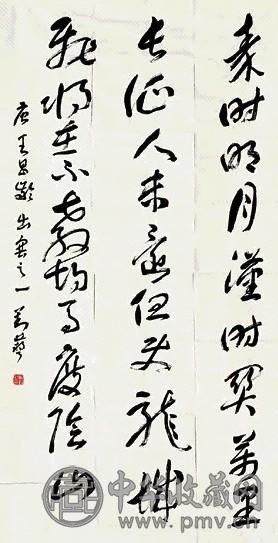 秦时明月漢时関萬里
長征人未還但使龍城
飛将在不教胡馬度陰山
唐王昌齡出塞之一
中华收藏网
www.pmv.cn